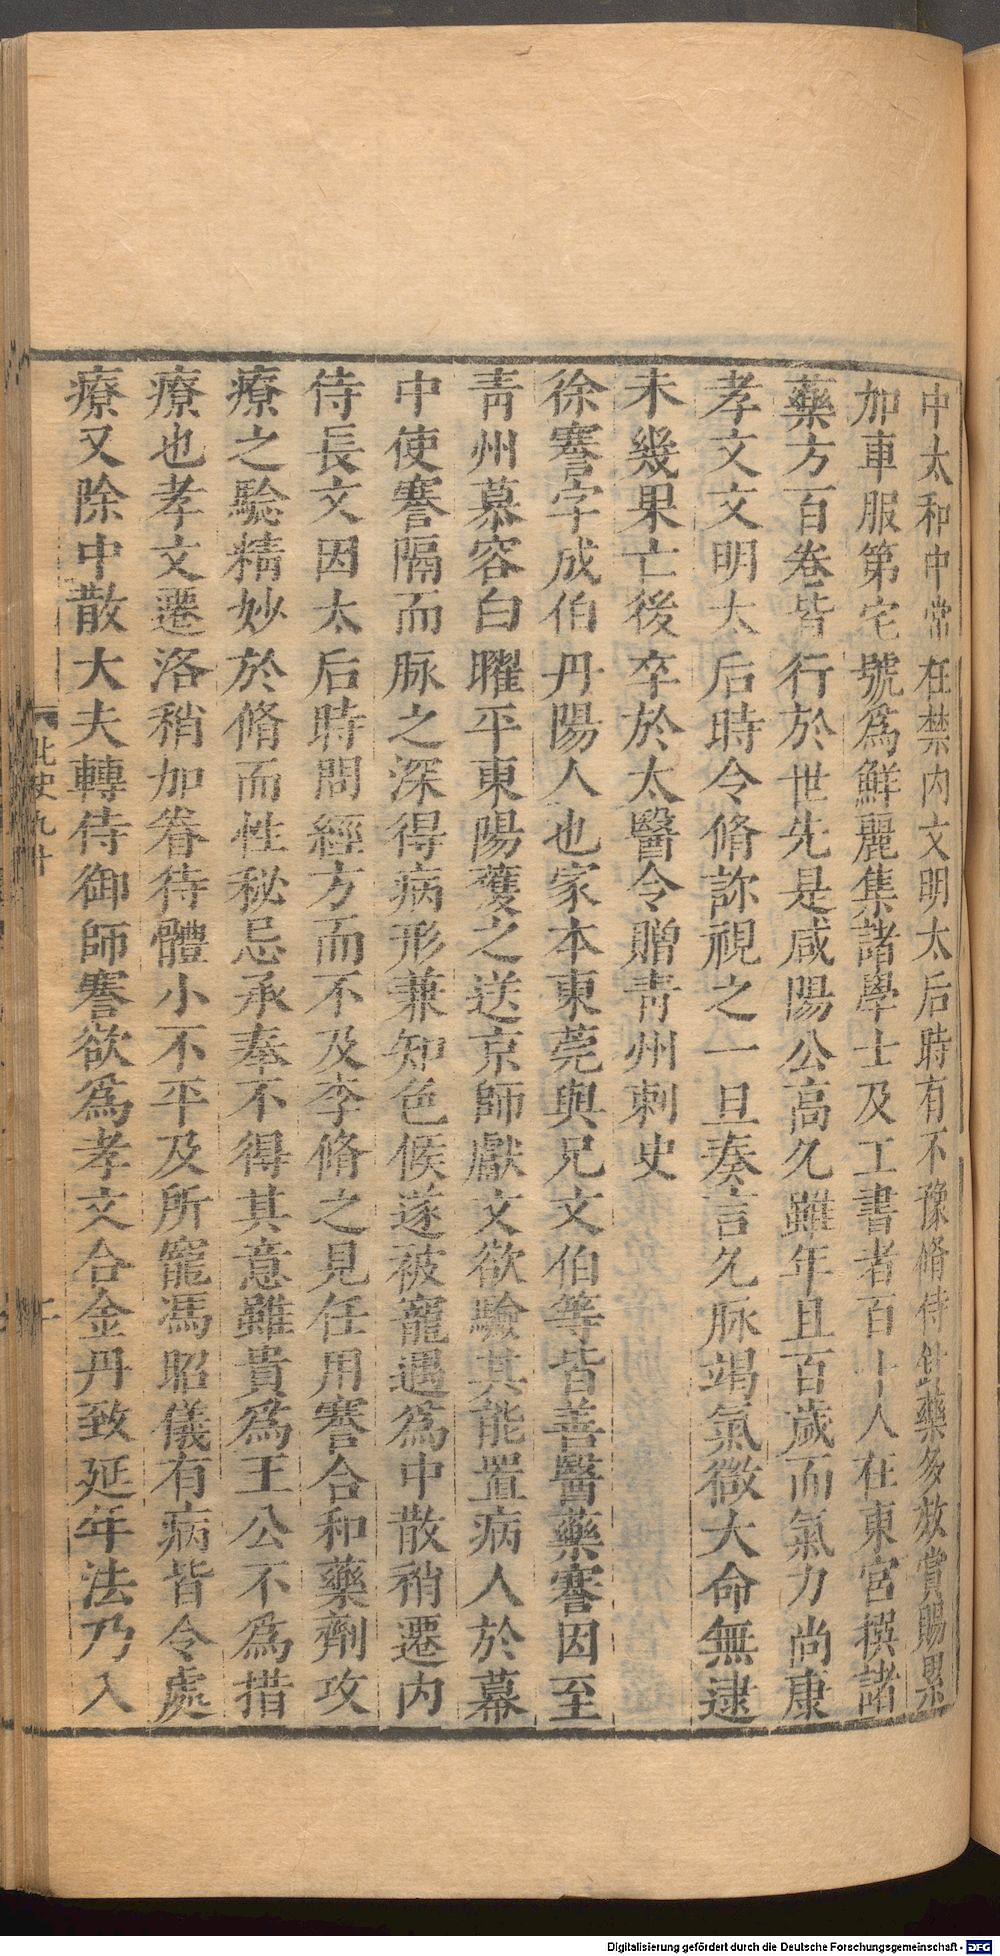 中太和中常在禁内文明太后時有不豫脩侍針藥多效賞賜累
加車服第宅號爲鮮麗集諸學士及工書者百十人在東宮撰諸
藥方百卷皆行於世先是咸陽公高久雖年且百歲而氣力尚康
孝文文明太后時令脩診視之一旦奏言久脉竭氣微大命無逮
未幾果亡後卒於太醫令贈靑州刺史
徐謇字成伯丹陽人也家本東莞與兄文伯等皆善醫藥謇因至
靑州慕容白曜平東陽獲之送京師獻文欲驗其能置病人於幕
中使謇隔而脉之深得病形兼知色候遂被寵遇爲中散稍遷内
侍長文因太后時問經方而不及李脩之見任用謇合和藥劑攻
療之驗精妙於脩而性秘忌承奉不得其意雖貴爲王公不爲措
療也孝文遷洛稍加眷待體小不平及所寵馮昭儀有病皆令處
療又除中散大夫轉侍御師謇欲爲孝文合金丹致延年法乃入
北史九十
Digitalisierung gefördert durch die Deutsche Forschungsgemeinschaft - DFG